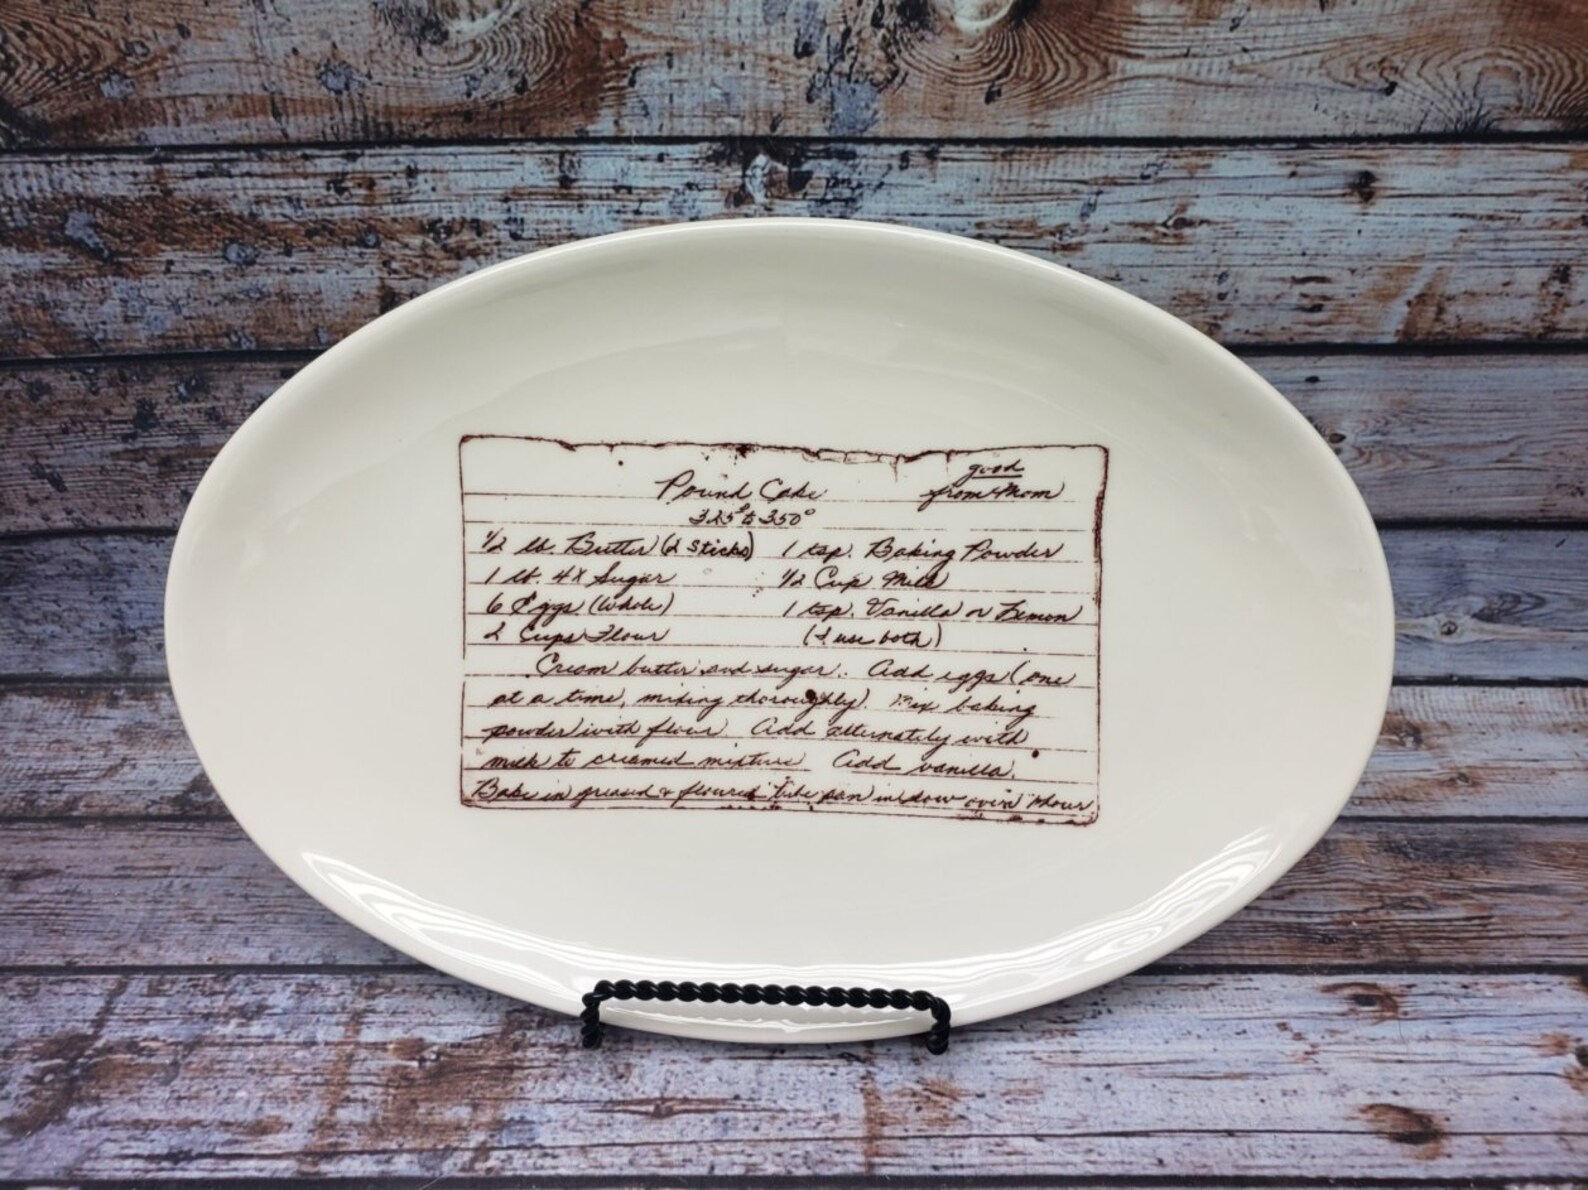 good
Pound Cake from Mom
325° to 350°
1/2 lb. Butter (2 sticks) 1 tsp. Baking Powder
1 lb. 4X Sugar 1/2 Cup Milk
6 Eggs (whole) 1 tsp. Vanilla or Lemon
2 Cups Flour (I use both)
Cream butter and sugar. Add eggs (one
at a time, mixing thoroughly). Mix baking
powder with flour. Add alternately with
milk to creamed mixture. Add vanilla.
Bake in greased & floured tube pan in slow oven 1 hour